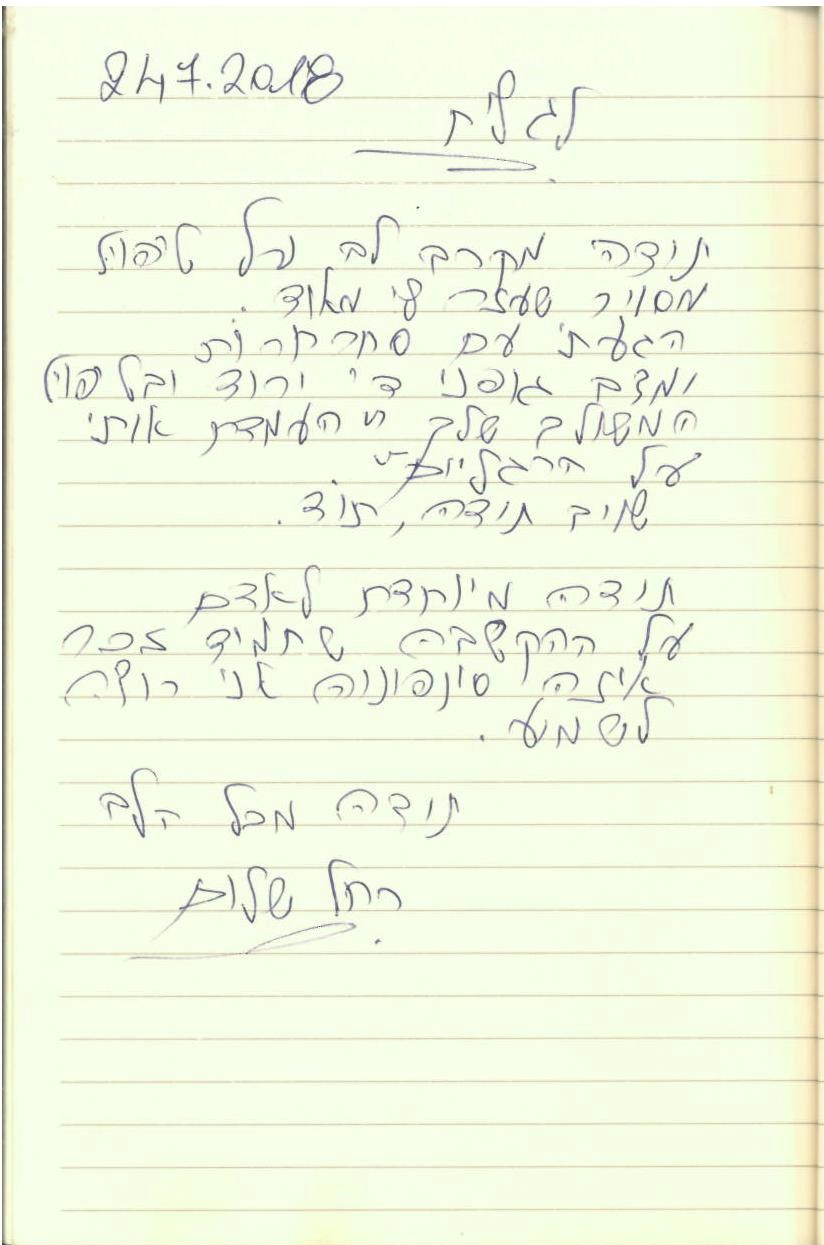 24.7.2018
לגלית
תודה מקרב לב על טיפול
מסור שעזר לי מאוד.
הגעתי עם סחרחורות
ומצב גופני די ירוד ובטיפול
המשולב שלך "העמדת אותי
על הרגליים"
שוב תודה, תודה.
תודה מיוחדת לאדם
על ההקשבה שתמיד זכר
איזה סימפוניה אני רוצה
לשמוע.
תודה מכל הלב
רחל שלום